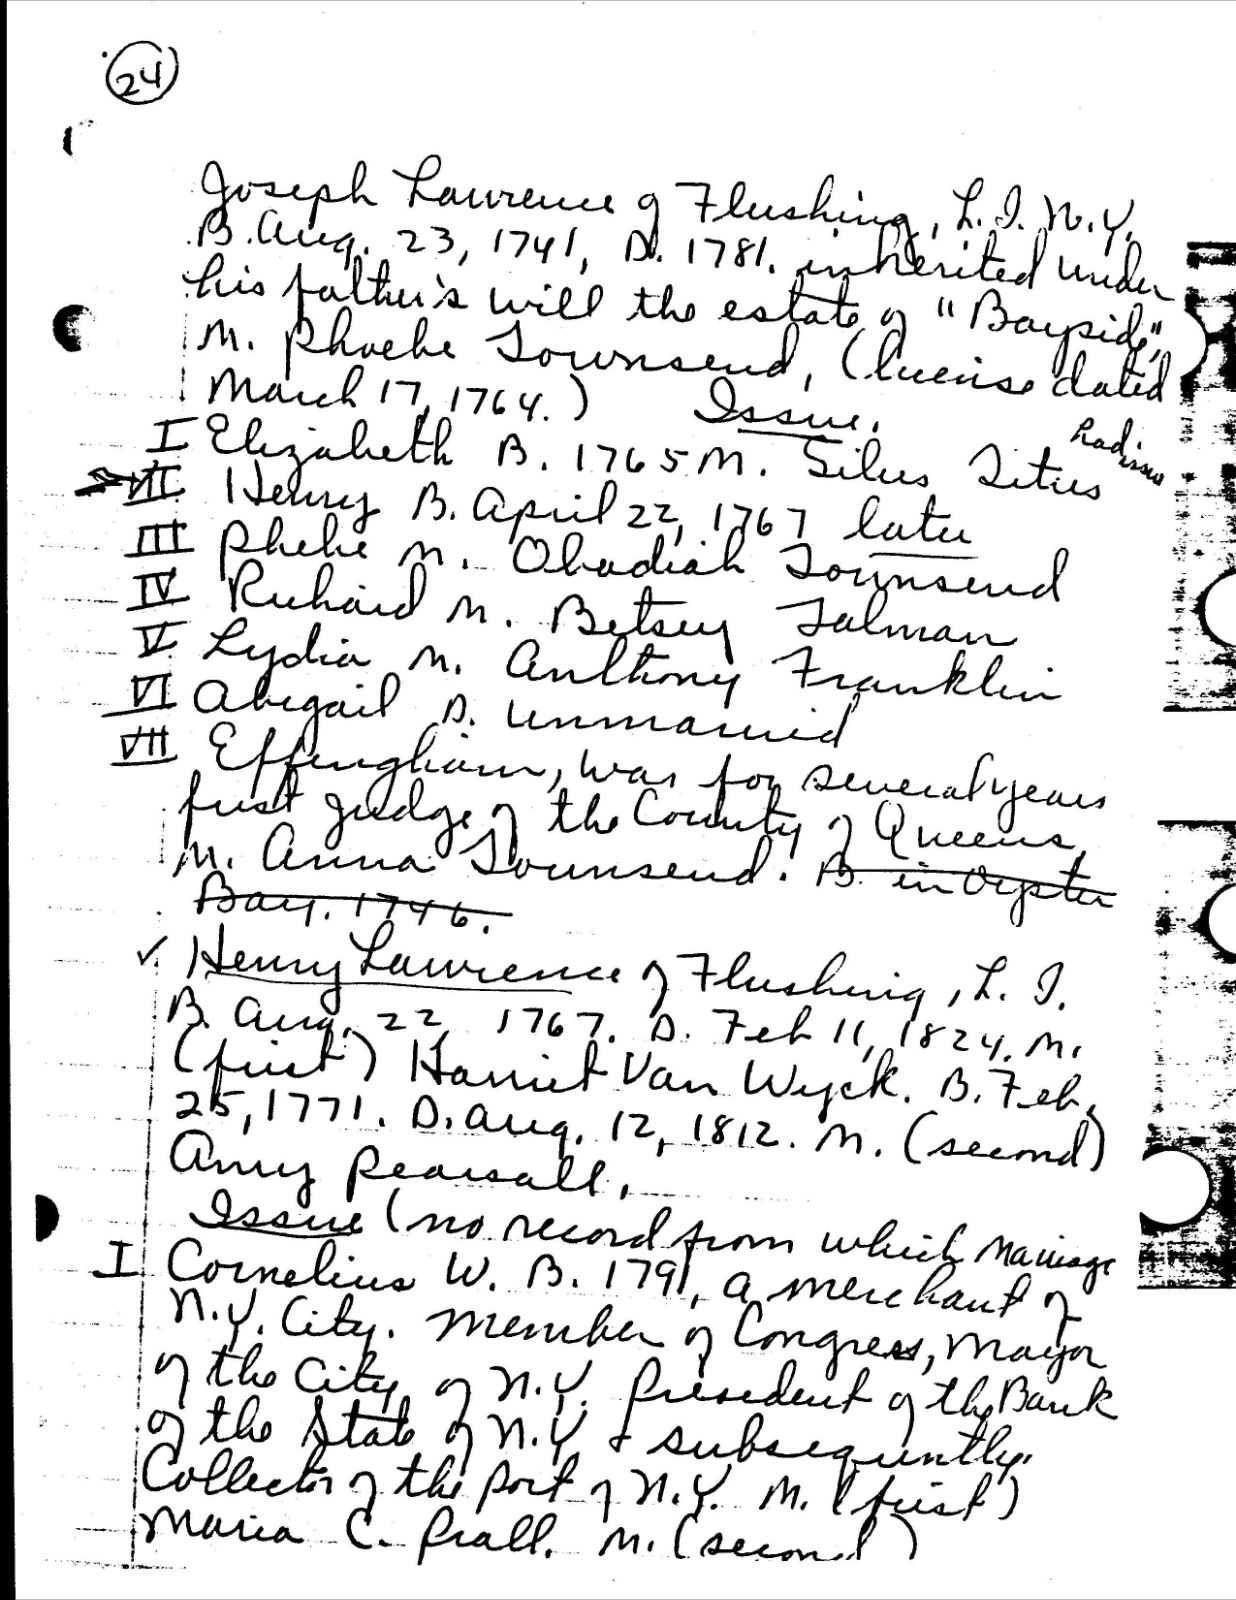 24
Joseph Lawrence of Flushing, L.I. N.Y.
B. Aug. 23, 1741, D. 1781. inherited under
his father's will the estate of "Bayside",
M. Phoebe Townsend, (license dated
March 17, 1764.) Issue.
I Elizabeth B. 1765 M. Silus Titus
II Henry B. April 22, 1767 later
III Phebe M. Obadiah Townsend
IV Richard M. Betsey Talman
V Lydia M. Anthony Franklin
VI Abigail D. Unmarried
VII Effingham, was for several years
first Judge of the County of Queens,
M. Anna Townsend. B. in Oyster
Bay. 1746.
✓ Henry Lawrence of Flushing, L. I.
B. Aug. 22, 1767. D. Feb 11, 1824. M.
(first) Harriet Van Wyck. B. Feb,
25, 1771. D. Aug. 12, 1812. M. (second)
Amy Pearsall.
Issue (no record from which Marriage
I Cornelius W. B. 1791, a merchant of
N.Y. City. Member of Congress, Mayor
of the City of N.Y. President of the Bank
of the State of N.Y. & subsequently
Collector of the Port of N.Y. M. (first)
Maria C. Prall. M. (second)